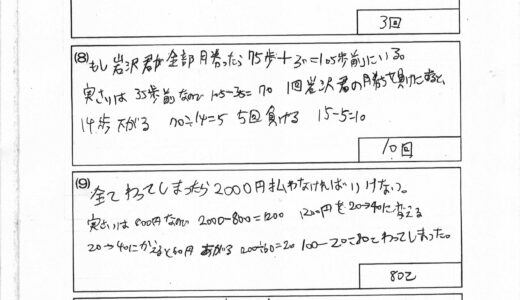 3回
(8) もし岩沢君が全部勝ったら 75歩+30=105歩前にいる。
実さいは 35歩前なので 105-35=70 1回岩沢君の勝ちを負けにすると、
14歩下がる 70÷14=5 5回負ける 15-5=10
10回
(9) 全てわってしまったら2000円払わなければいけない。
実さいは800円なので 2000-800=1200 1200円を20→40に変える
20→40にかえると60円あがる 1200÷60=20 100-20=80こわってしまった。
80こ